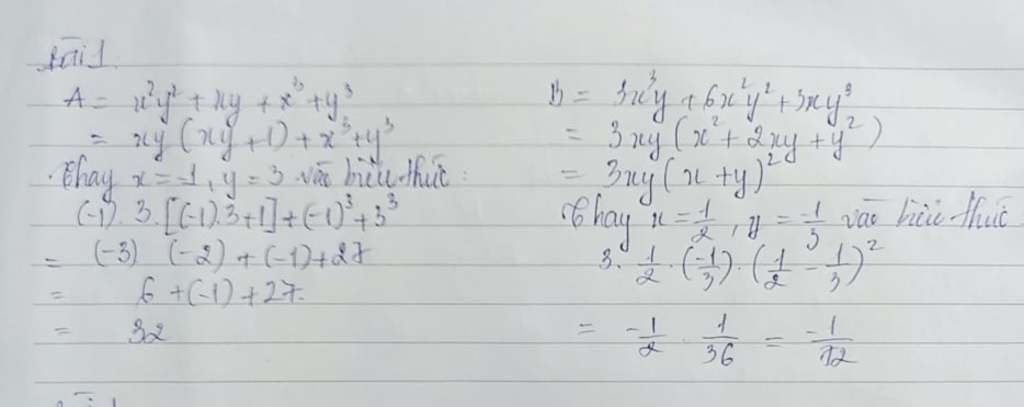 Bài 1
A = x²y² + xy + x³ + y³
= xy (xy + 1) + x³ + y³
. Thay x = -1, y = 3 vào biểu thức :
(-1). 3. [(-1).3 + 1] + (-1)³ + 3³
= (-3) (-2) + (-1) + 27
= 6 + (-1) + 27.
= 32
B = 3x³y + 6x²y² + 3xy³
= 3xy (x² + 2xy + y²)
= 3xy (x + y)²
Thay x = 1/2, y = -1/3 vào biểu thức
3. 1/2 . (-1/3) . (1/2 - 1/3)²
= -1/2 . 1/36 = -1/72